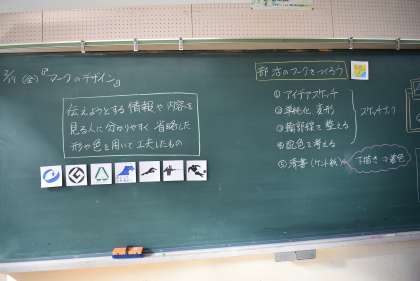 (金)『マークのデザイン』
伝えようとする情報や内容を
見る人に分かりやすく省略した
形や色を用いて工夫したもの
部活のマークをつくろう
① アイデアスケッチ
② 単純化、変形
③ 輪郭線を整える
④ 配色を考える
⑤ 清書(ケント紙)
スケッチブック
下描き→着色